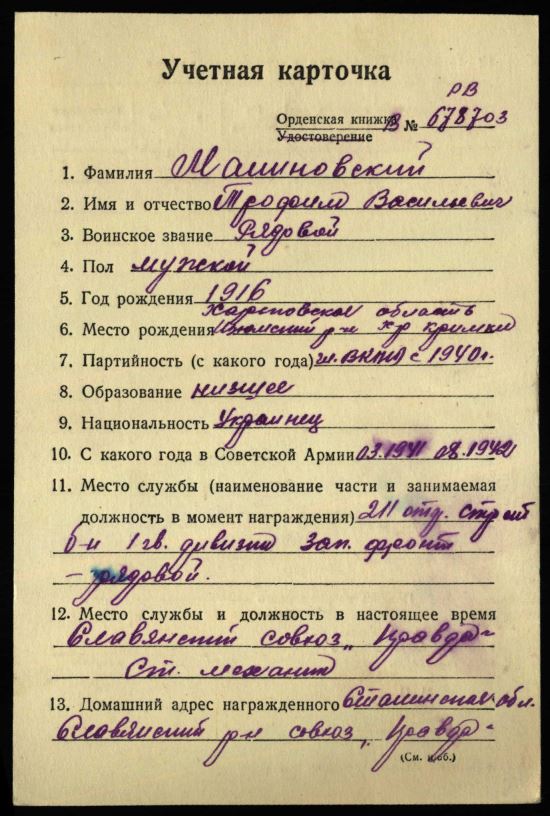 Учетная карточка
РВ
Орденская книжка В № 678703
Удостоверение
1. Фамилия Малиновский
2. Имя и отчество Трофим Васильевич
3. Воинское звание Рядовой
4. Пол мужской
5. Год рождения 1916
Харьковская область
6. Место рождения р-н хр
7. Партийность (с какого года) с 1940 г.
8. Образование низшее
9. Национальность Украинец
10. С какого года в Советской Армии 03.1941 08.1942
11. Место службы (наименование части и занимаемая
должность в момент награждения) 211 отд. строит
б-н 1 гв. Зап. фронт
- рядовой.
12. Место службы и должность в настоящее время
Славянский совхоз „Правда"
Ст. механик
13. Домашний адрес награжденного Сталинская обл.
Славянский р-н совхоз „Правда"
(См. н/об.)